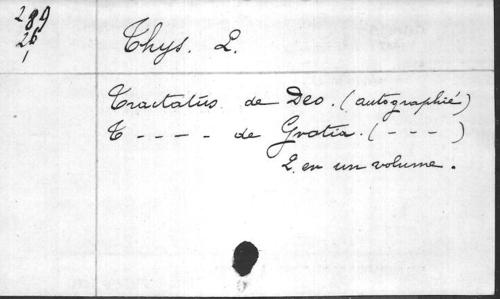 289
26
1
Thys. L.
Tractatus de Deo. (autographié)
T - - - - de Gratia. ( - - - )
2 en un volume.